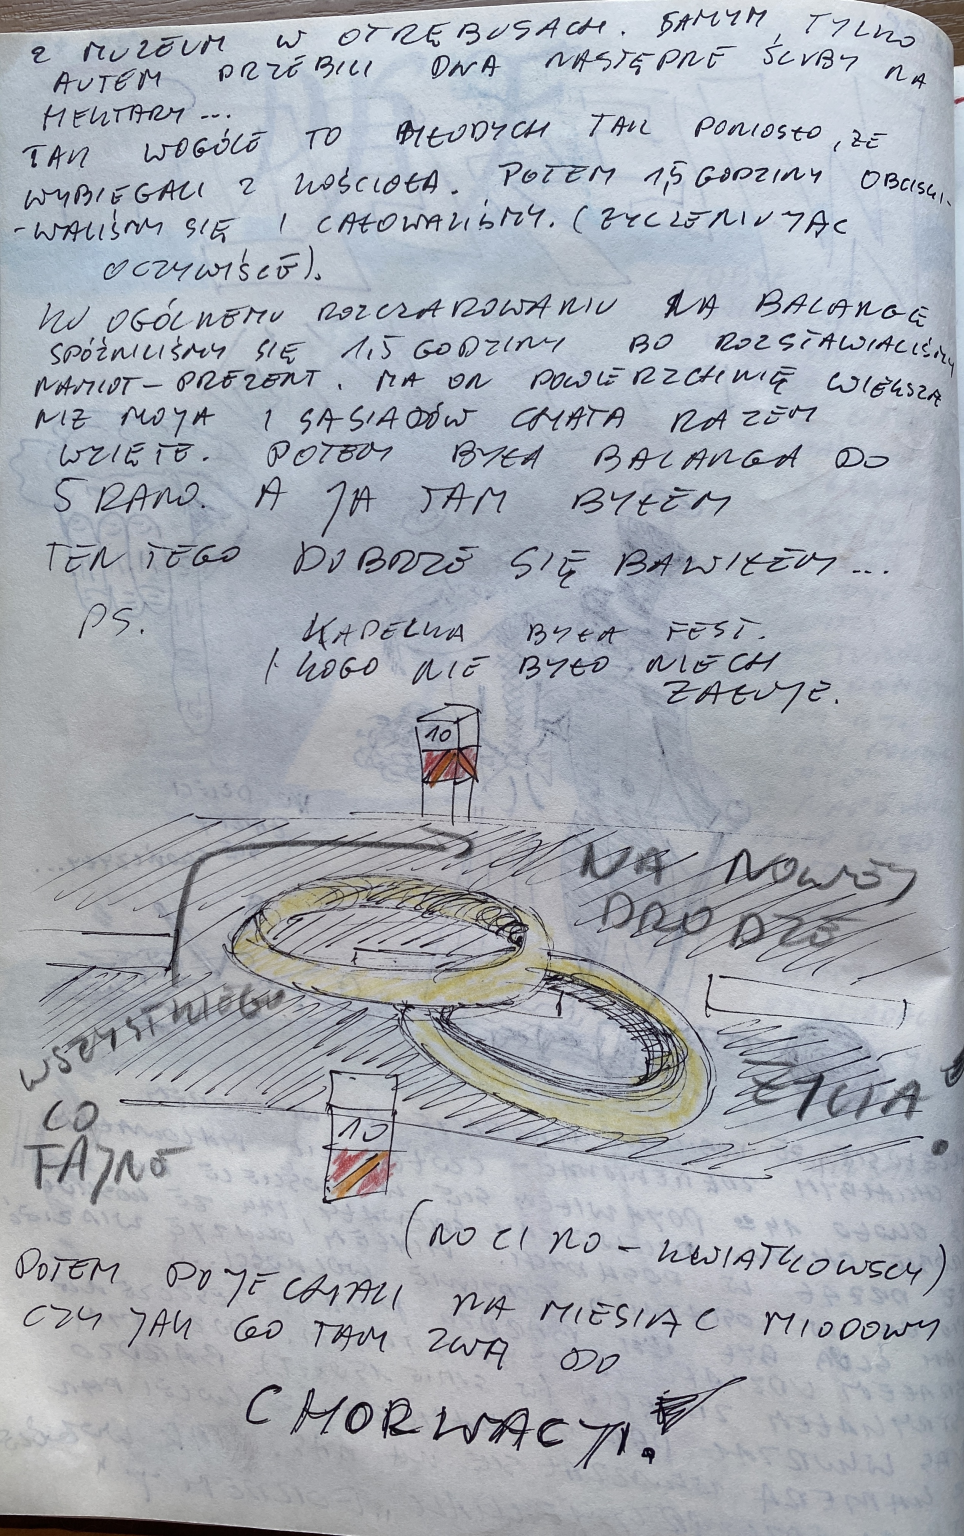 Z MUZEUM W OTRĘBUSACH. SAMYM TYLKO
AUTEM PRZEBILI DWA NASTĘPNE ŚLUBY NA
METARY...
TAK WOGÓLE TO MŁODYCH TAK PONIOSŁO, ŻE
WYBIEGALI Z KOŚCIOŁA. POTEM 1,5 GODZINY OBCISKI-
-WALIŚMY SIĘ I CAŁOWALIŚMY. (ŻYCZENIUJĄC
OCZYWIŚCIE).
KU OGÓLNEMU ROZCZAROWANIU NA BALANGĘ
SPÓŹNILIŚMY SIĘ 1,5 GODZINY BO ROZSTAWIALIŚMY
NAMIOT-PREZENT. MA ON POWIERZCHNIĘ WIEKSZA
NIZ MOJA I SĄSIADÓW CHATA RAZEM
WZIĘTE. POTEM BYŁA BALANGA DO
5 RANO. A JA TAM BYŁEM
TEN TEGO DOBRZE SIĘ BAWIŁEM...
PS. KAPELKA BYŁA FEST.
I KOGO NIE BYŁO NIECH
ŻAŁUJE.
10
NA NOWEJ
DRODZE
WSZYSTKIEGO
ŻYCIA.
CO
FAJNE
10
(NO CI NO-KWIATKOWSCY)
POTEM POJECHALI NA MIESIĄC MIODOWY
CZY JAK GO TAM ZWĄ DO
CHORWACJI.